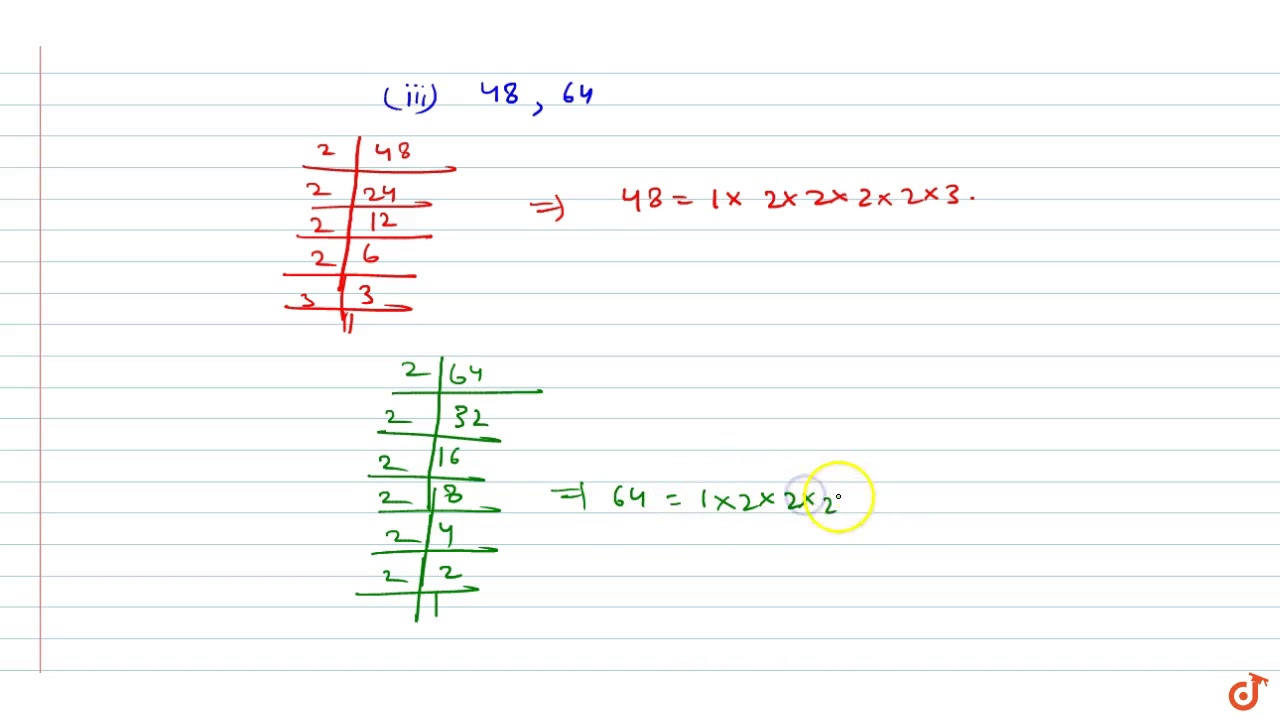 (iii) 48 , 64
2 | 48
2 | 24
2 | 12
2 | 6
3 | 3
1
⇒ 48 = 1 × 2 × 2 × 2 × 2 × 3 .
2 | 64
2 | 32
2 | 16
2 | 8
2 | 4
2 | 2
1
⇒ 64 = 1 × 2 × 2 × 2